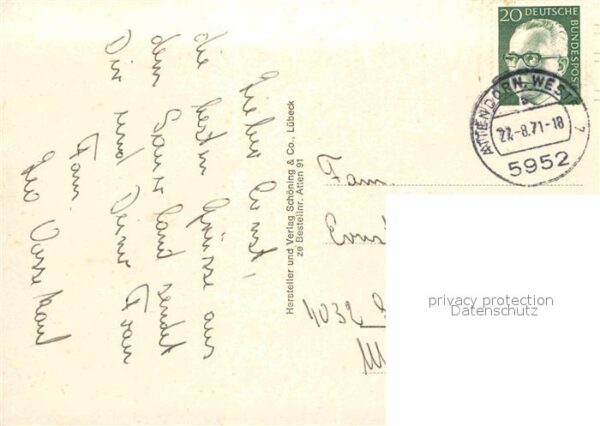 Lieber Ernst,
die besten Grüsse aus
dem Sauerland sendet
Dir und Deiner Frau
Fam.
Leo
Hersteller und Verlag Schöning & Co., Lübeck
ze Bestellnr. Atten 91
20 DEUTSCHE
BUNDESPOST
ATTENDORN-WEST
a
27.-8.71-18
7
5952
Fam.
Ernst
4032
privacy protection
Datenschutz